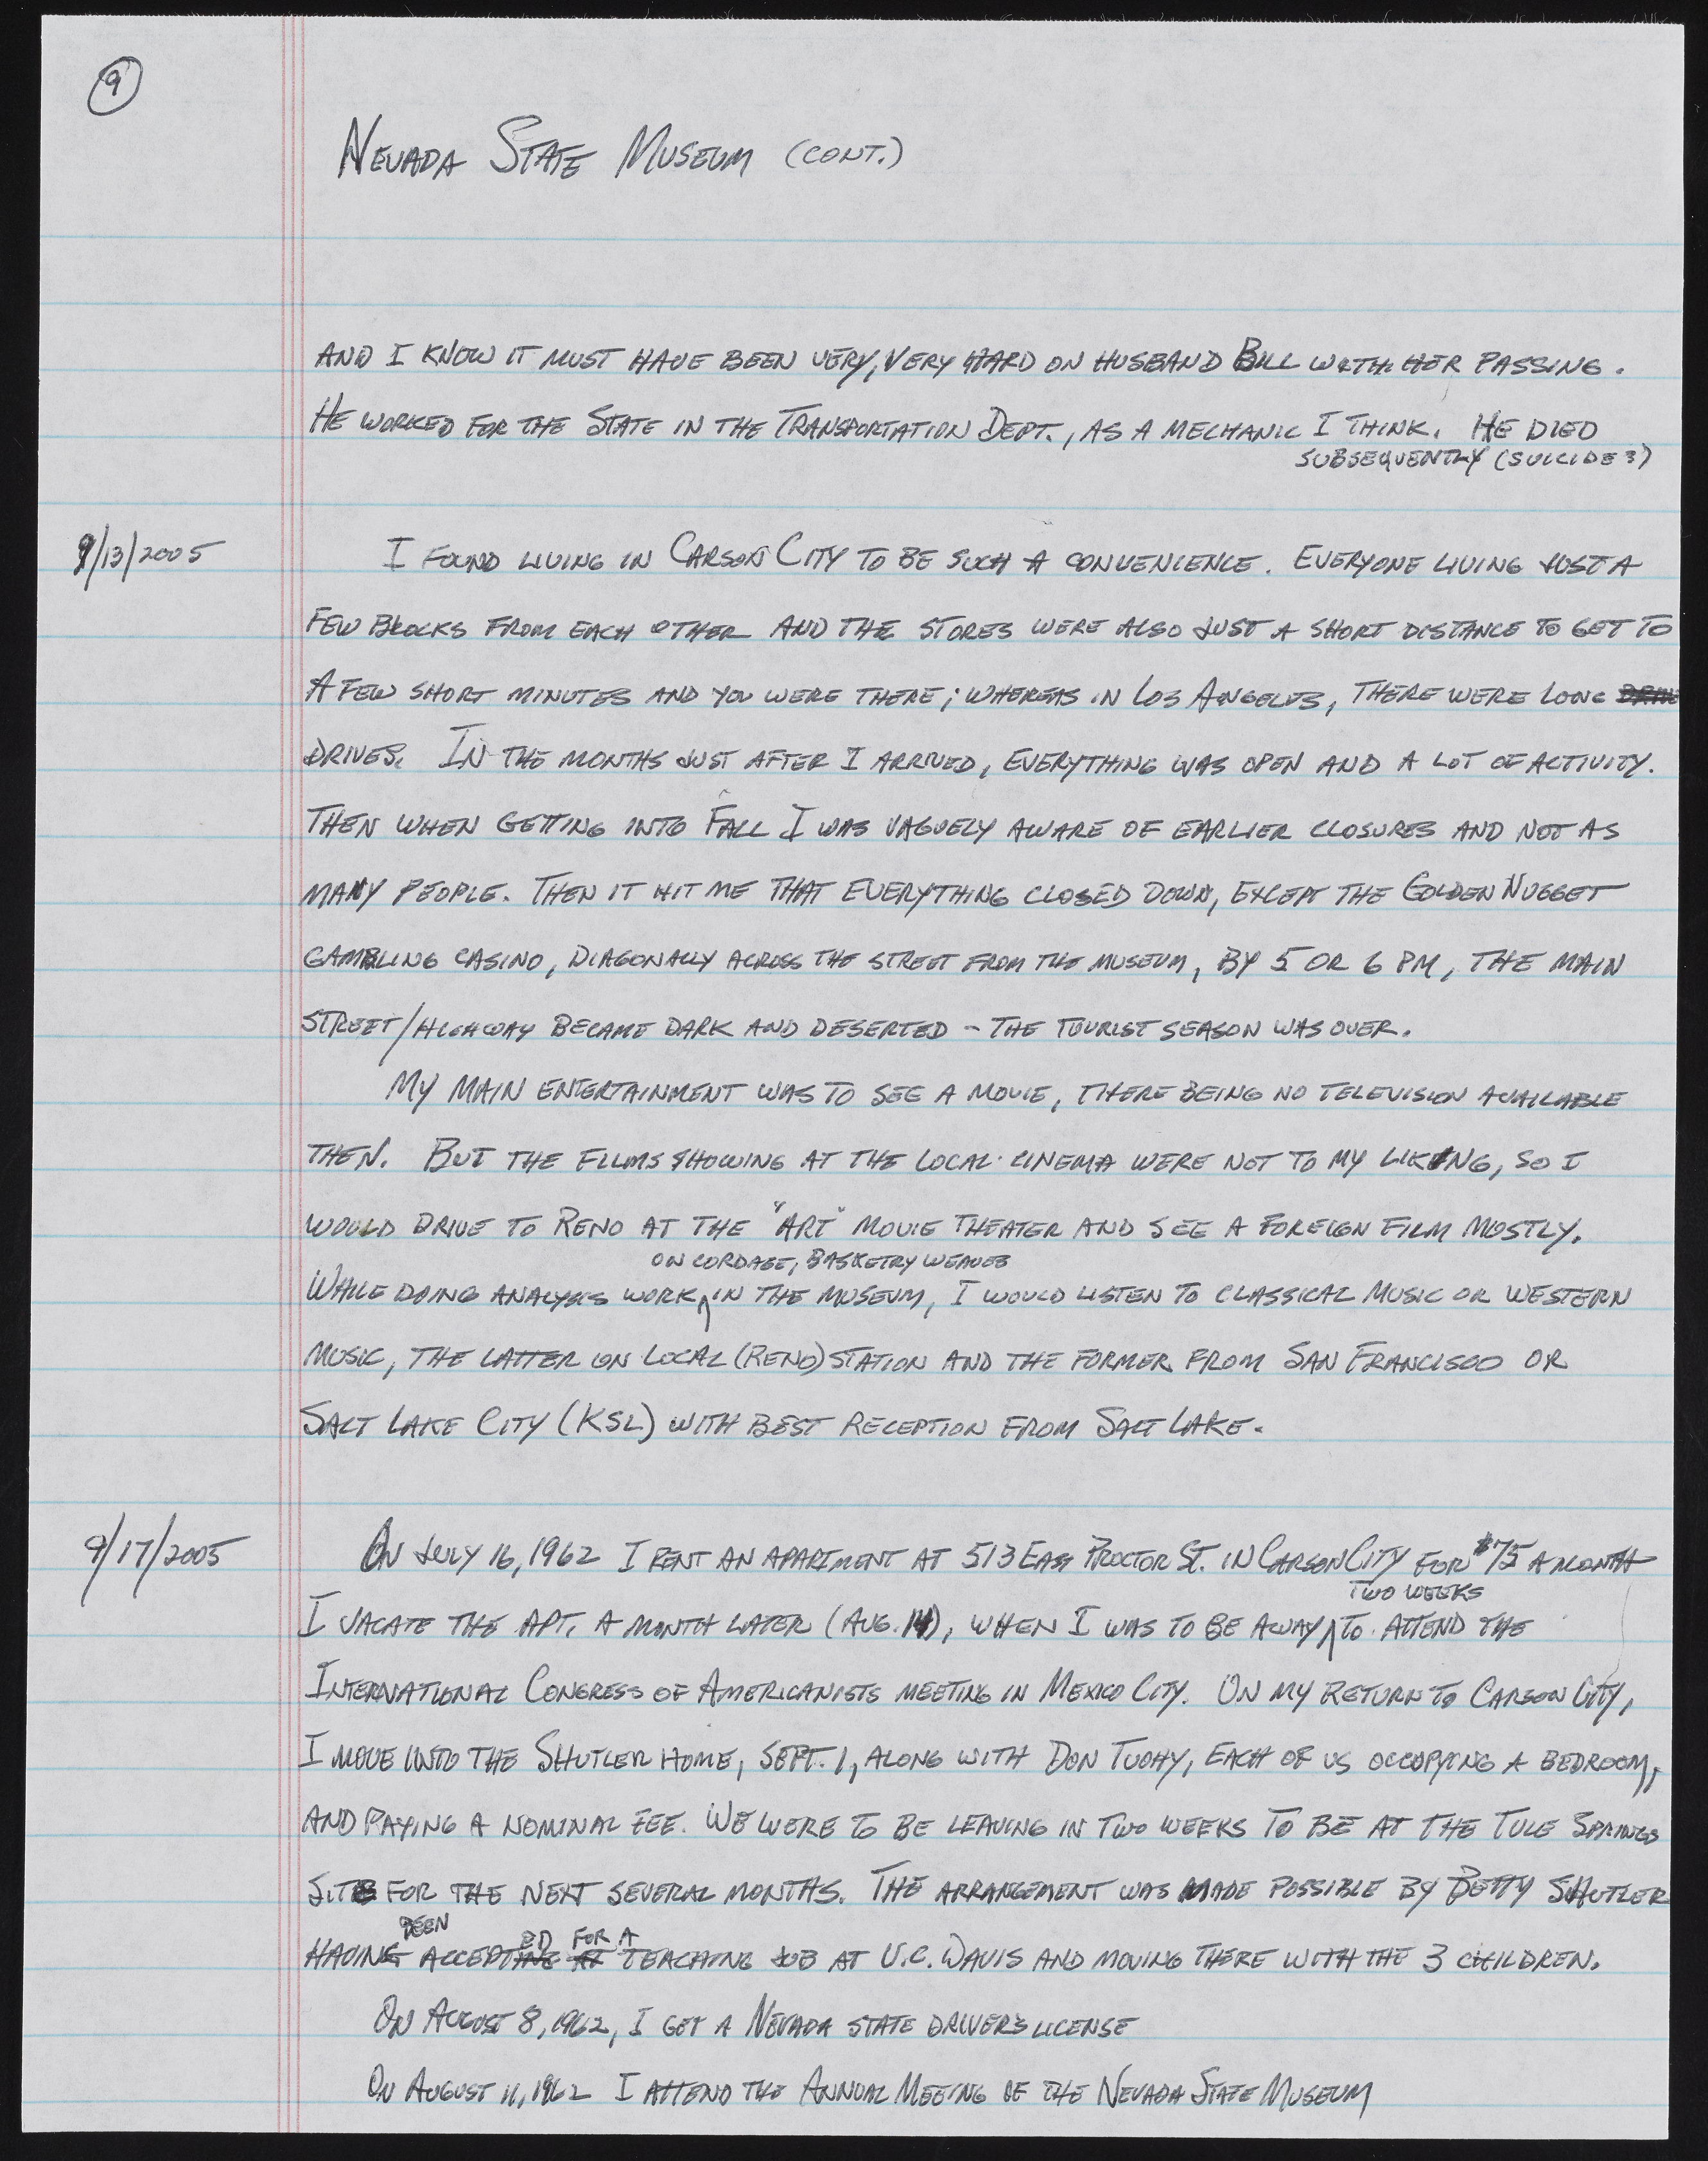 9
NEVADA STATE MUSEUM (CONT.)
AND I KNOW IT MUST HAVE BEEN VERY, VERY HARD ON HUSBAND BILL WITH HER PASSING.
HE WORKED FOR THE STATE IN THE TRANSPORTATION DEPT., AS A MECHANIC I THINK. HE DIED
SUBSEQUENTLY (SUICIDE?)
9/13/2005
I FOUND LIVING IN CARSON CITY TO BE SUCH A CONVENIENCE. EVERYONE LIVING JUST A
FEW BLOCKS FROM EACH OTHER AND THE STORES WERE ALSO JUST A SHORT DISTANCE TO GET TO
A FEW SHORT MINUTES AND YOU WERE THERE; WHEREAS IN LOS ANGELES, THERE WERE LONG
DRIVES. IN THE MONTHS JUST AFTER I ARRIVED, EVERYTHING WAS OPEN AND A LOT OF ACTIVITY.
THEN WHEN GETTING INTO FALL I WAS VAGUELY AWARE OF EARLIER CLOSURES AND NOT AS
MANY PEOPLE. THEN IT HIT ME THAT EVERYTHING CLOSED DOWN, EXCEPT THE GOLDEN NUGGET
GAMBLING CASINO, DIAGONALLY ACROSS THE STREET FROM THE MUSEUM, BY 5 OR 6 PM, THE MAIN
STREET/HIGHWAY BECAME DARK AND DESERTED - THE TOURIST SEASON WAS OVER.
MY MAIN ENTERTAINMENT WAS TO SEE A MOVIE, THERE BEING NO TELEVISION AVAILABLE
THEN. BUT THE FILMS SHOWING AT THE LOCAL CINEMA WERE NOT TO MY LIKING, SO I
WOULD DRIVE TO RENO AT THE "ART" MOVIE THEATER AND SEE A FOREIGN FILM MOSTLY.
ON CORDAGE, BASKETRY WEAVES
WHILE DOING ANALYSIS WORK IN THE MUSEUM, I WOULD LISTEN TO CLASSICAL MUSIC OR WESTERN
MUSIC, THE LATTER ON LOCAL (RENO) STATION AND THE FORMER FROM SAN FRANCISCO OR
SALT LAKE CITY (KSL) WITH BEST RECEPTION FROM SALT LAKE.
9/17/2005
ON JULY 16, 1962 I RENT AN APARTMENT AT 513 EAST PROCTOR ST. IN CARSON CITY FOR $75 A MONTH
TWO WEEKS
I VACATE THE APT. A MONTH LATER (AUG. 14), WHEN I WAS TO BE AWAY TO ATTEND THE
INTERNATIONAL CONGRESS OF AMERICANISTS MEETING IN MEXICO CITY. ON MY RETURN TO CARSON CITY,
I MOVE INTO THE SHUTLER HOME, SEPT. 1, ALONG WITH DON TUOHY, EACH OF US OCCUPYING A BEDROOM,
AND PAYING A NOMINAL FEE. WE WERE TO BE LEAVING IN TWO WEEKS TO BE AT THE TULE SPRINGS
SITE FOR THE NEXT SEVERAL MONTHS. THE ARRANGEMENT WAS MADE POSSIBLE BY BETTY SHUTLER
BEEN ED FOR A
HAVING ACCEPTING AT TEACHING JOB AT U.C. DAVIS AND MOVING THERE WITH THE 3 CHILDREN.
ON AUGUST 8, 1962, I GET A NEVADA STATE DRIVER'S LICENSE
ON AUGUST 11, 1962 I ATTEND THE ANNUAL MEETING OF THE NEVADA STATE MUSEUM